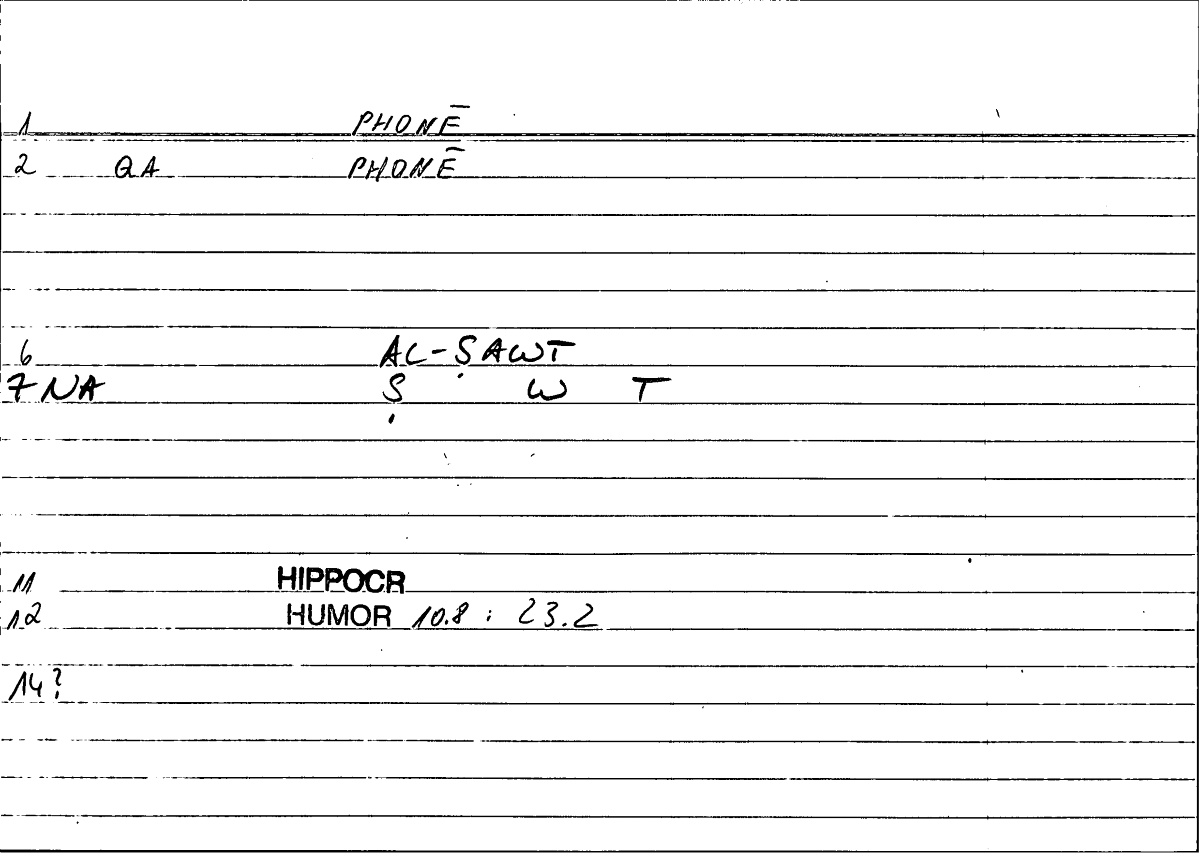 1 PHONĒ
2 QA PHONĒ
6 AL-ṢAWT
7 NA Ṣ W T
11 HIPPOCR
12 HUMOR 10.8 : 23.2
14?